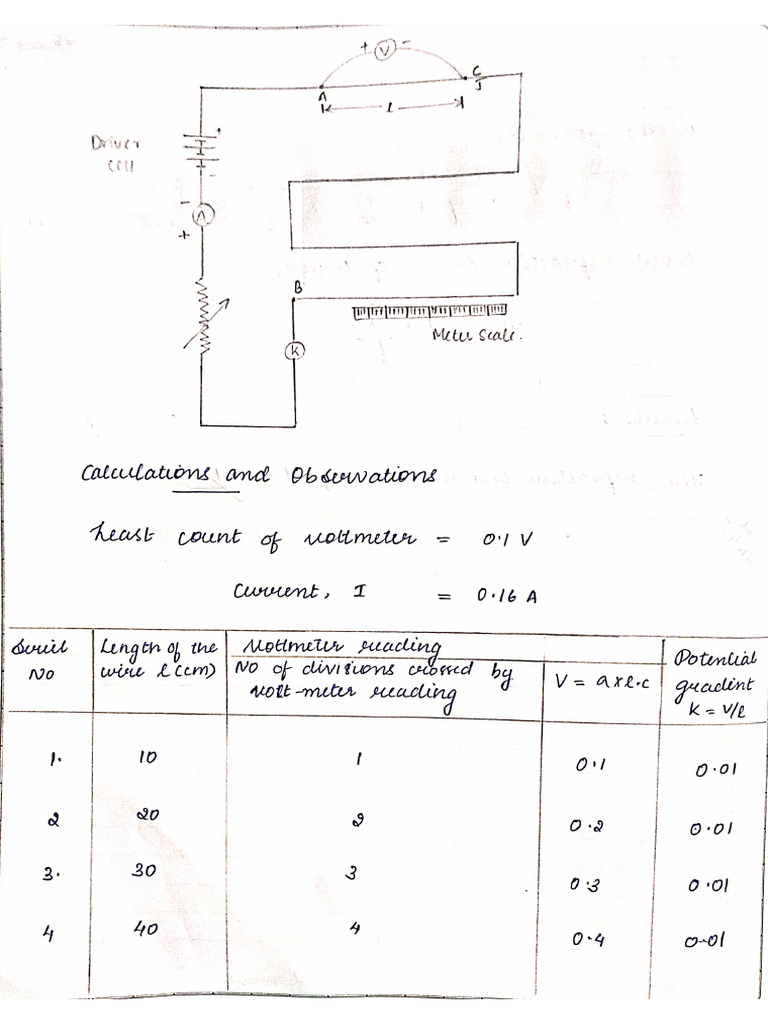 + V -
A
C
J
l
Driver
cell
+
-
-
A
+
B
K
Meter Scale.
Calculations and Observations
Least count of voltmeter = 0.1 V
Current, I = 0.16 A
Serial No
Length of the wire l (cm)
Voltmeter reading
No of divisions crossed by volt-meter reading
V = a x l.c
Potential gradient K = V/l
1. 10 1 0.1 0.01
2 20 2 0.2 0.01
3. 30 3 0.3 0.01
4 40 4 0.4 0.01